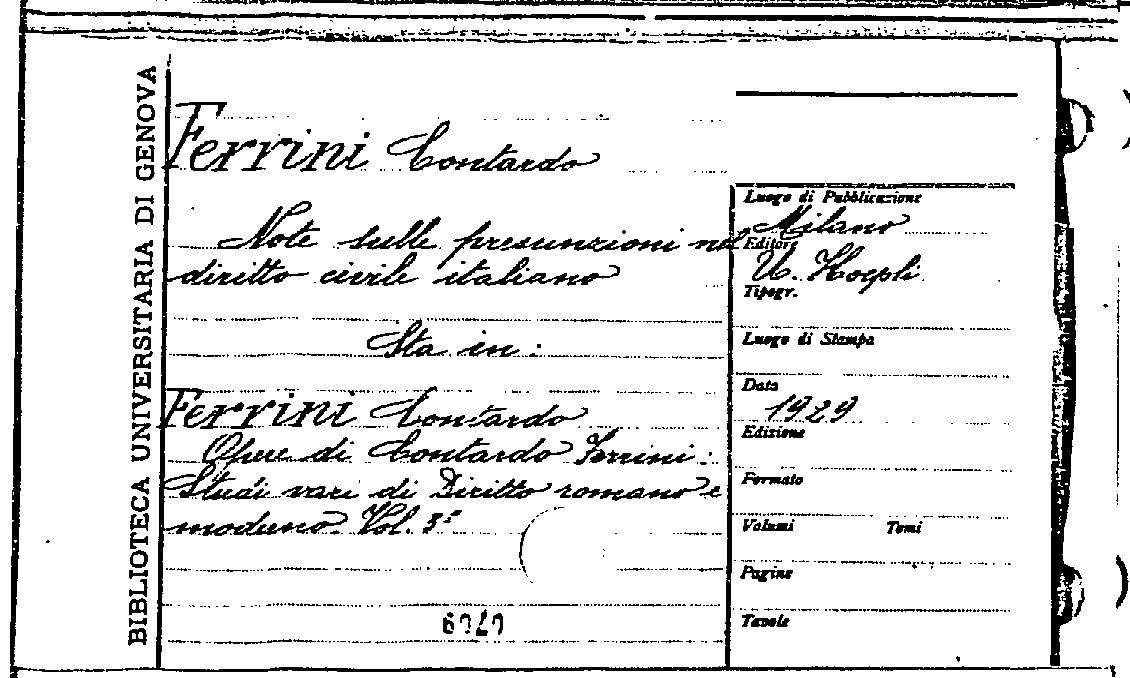 BIBLIOTECA UNIVERSITARIA DI GENOVA
Ferrini Contardo
Note sulle presunzioni nel
diritto civile italiano
Sta in:
Ferrini Contardo
Opere di Contardo Ferrini:
Studi vari di Diritto romano e
moderno. Vol. 3º
Luogo di Pubblicazione
Milano
Editore
U. Hoepli
Tipogr.
Luogo di Stampa
Data
1929
Edizione
Formato
Volumi Tomi
Pagine
Tavole